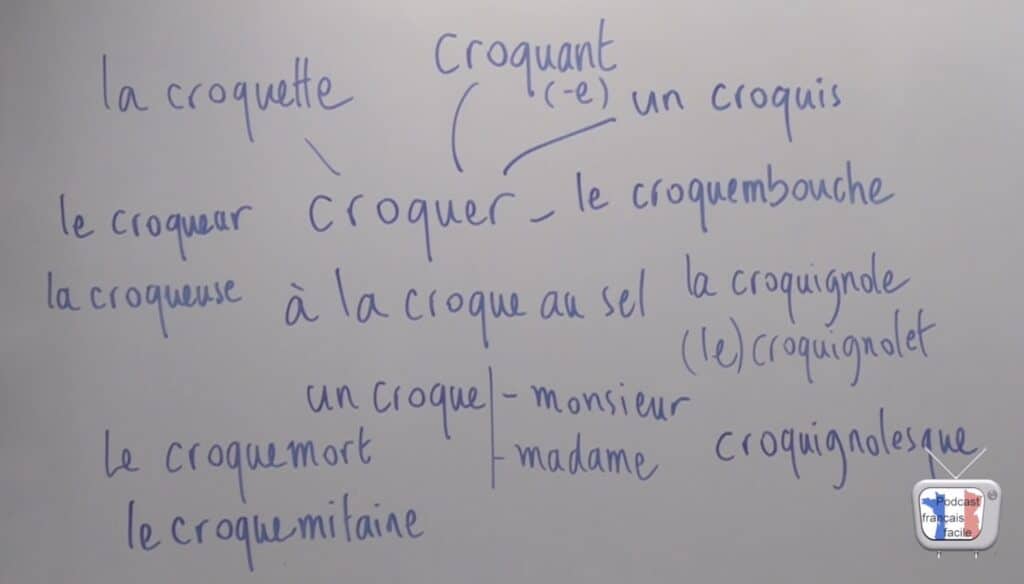 la croquette
croquant
(-e)
un croquis
le croqueur
croquer - le croquembouche
la croqueuse
à la croque au sel
la croquignole
(le) croquignolet
un croque - monsieur
- madame
le croquemort
croquignolesque
le croquemitaine
Podcast
français
facile